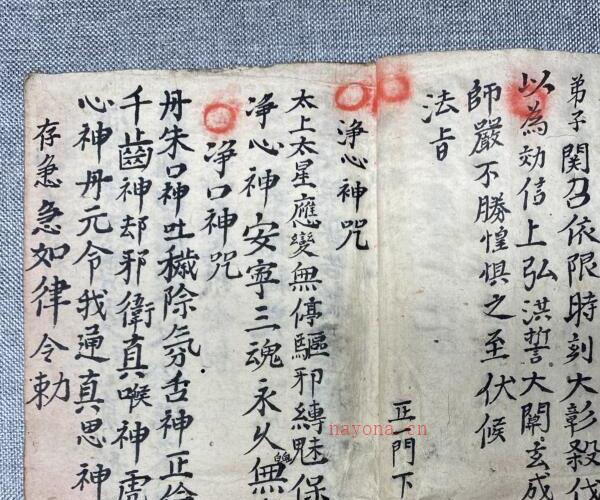 弟子関召依限時刻大彰殺伐
以為効信上弘洪誓大闡玄
師嚴不勝惶惧之至伏候
法旨
正一門下
净心神咒
太上太星應變無停驅邪縛魅保
净心神安寧三魂永久無
净口神咒
丹朱口神吐穢除氛舌神正倫
千齒神却邪衛真喉神虎
心神丹元令我通真思神
存急急如律令勅
nayona.cn